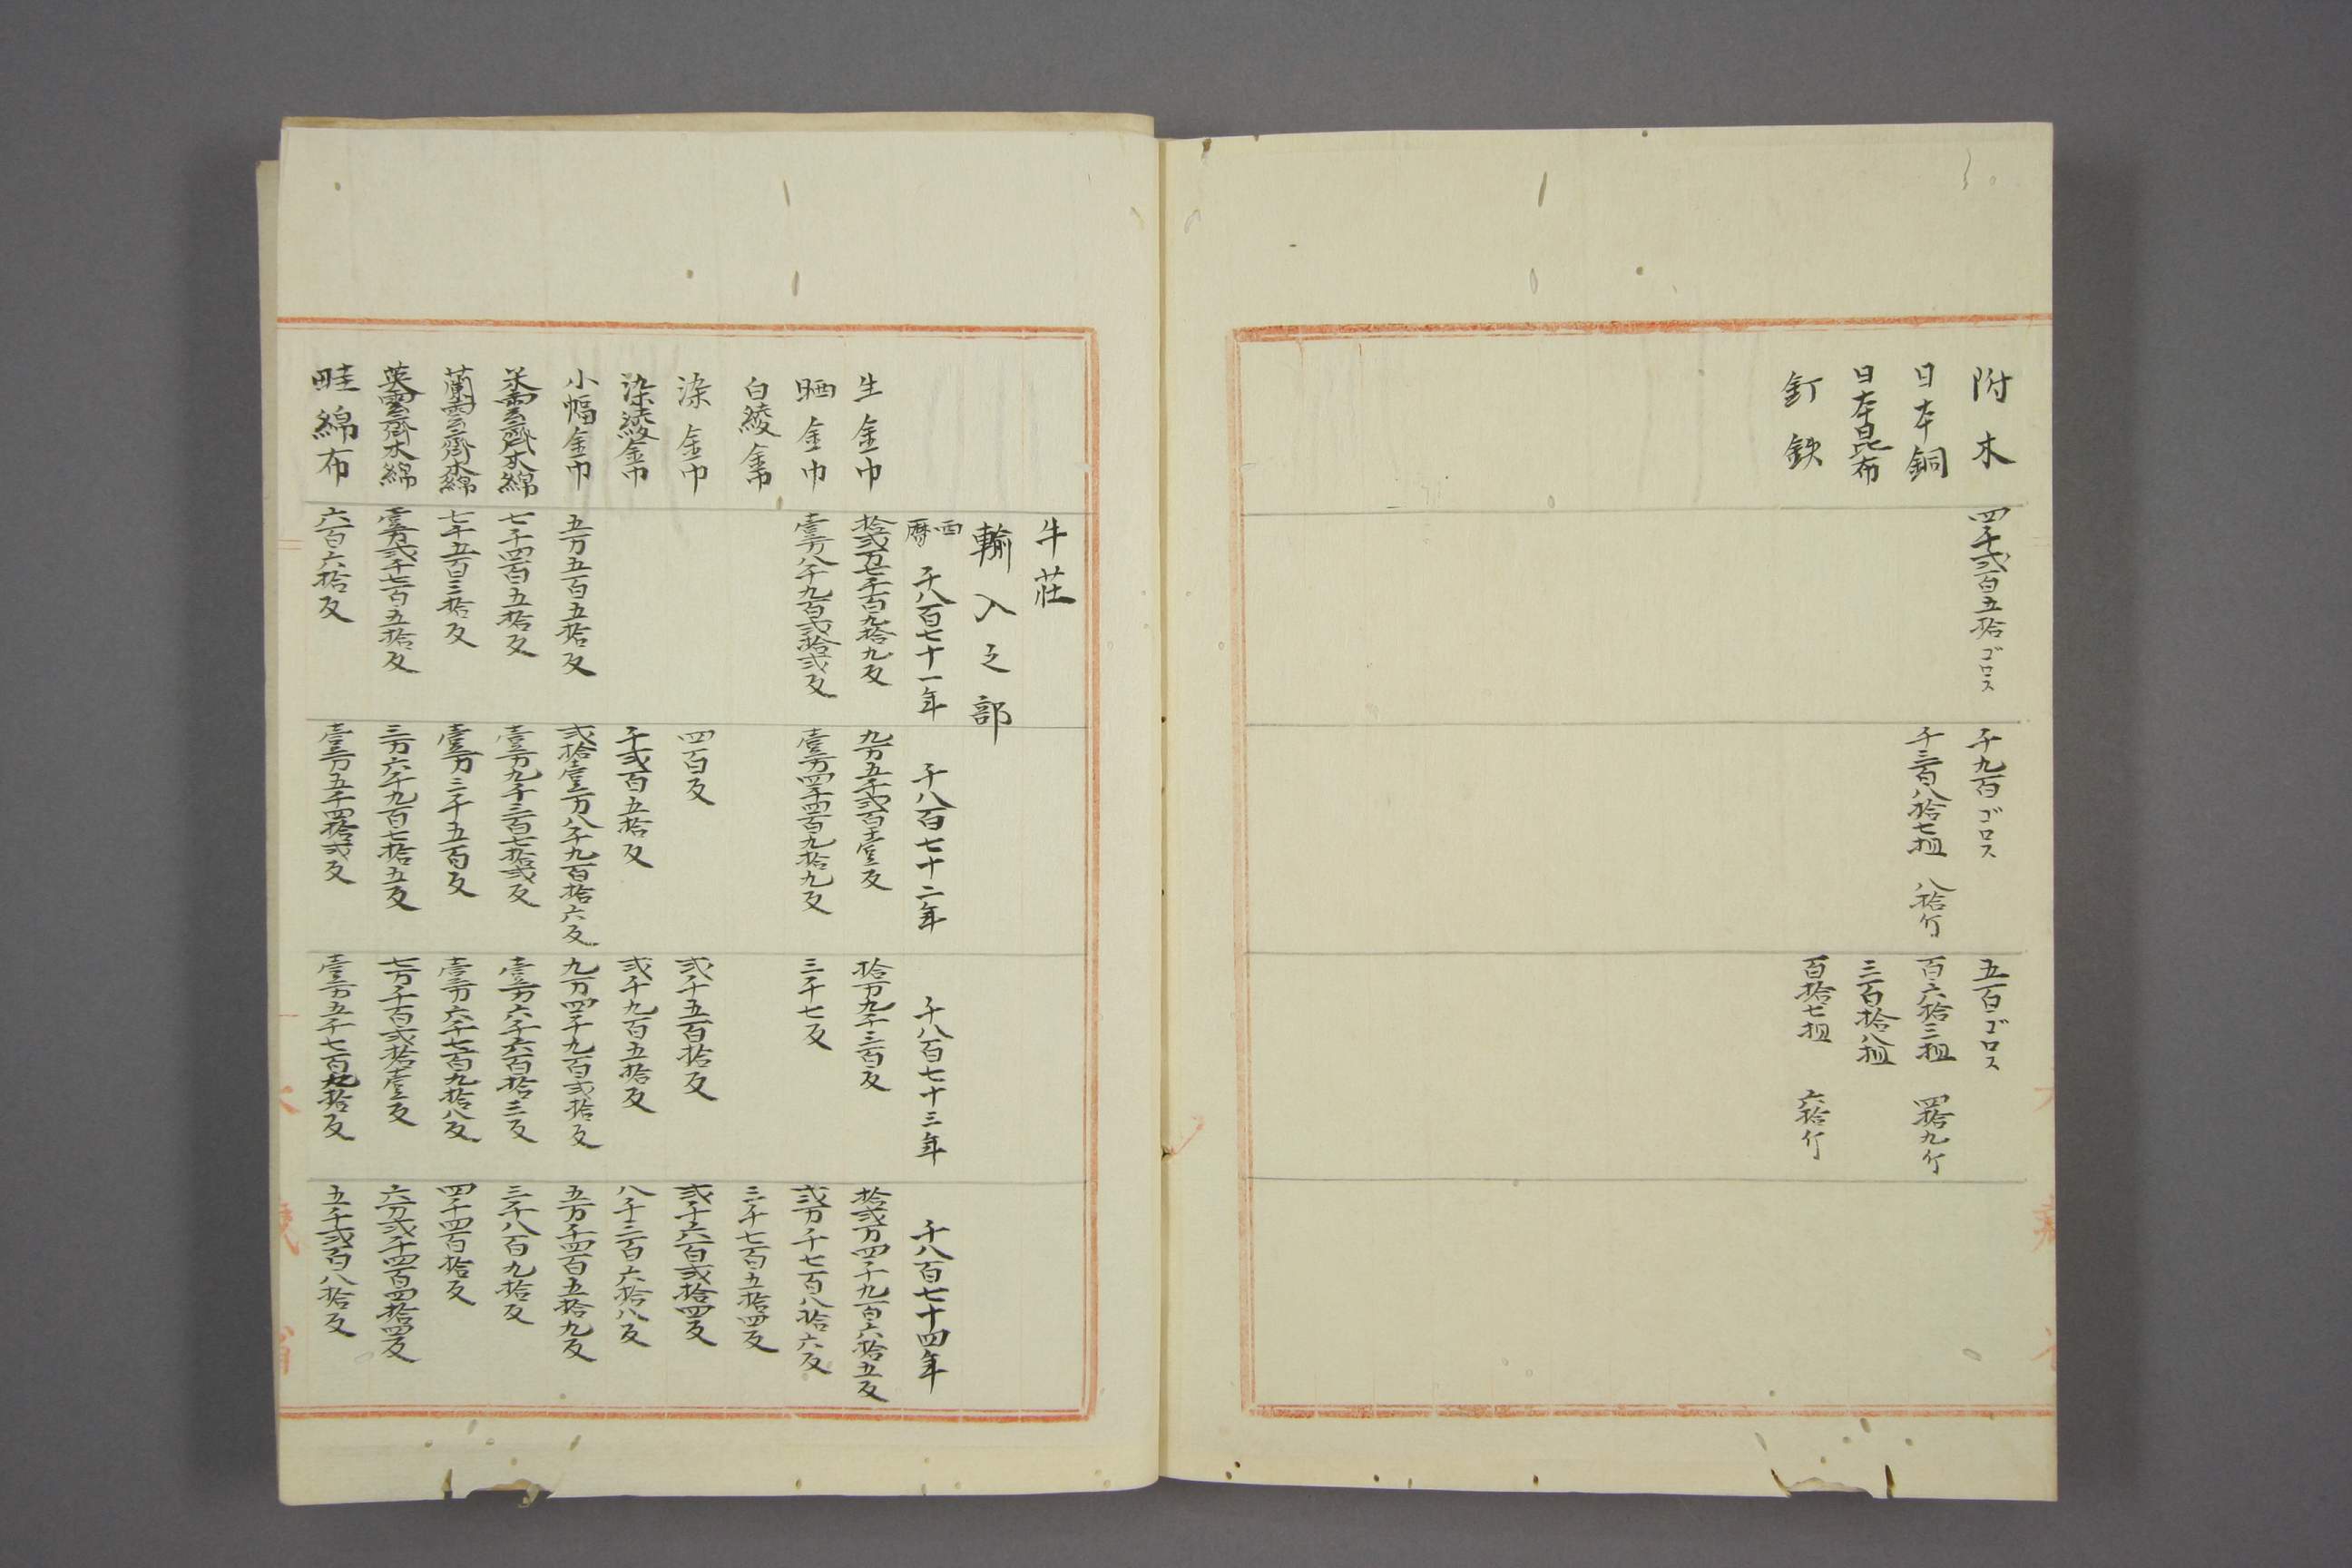 附木 四千弐百五拾ゴロス 千九百ゴロス 五百ゴロス
日本銅 千三百八拾七担 八拾斤 百六拾三担 四拾九斤
日本昆布 三百拾八担
釘鉄 百拾七担 六拾斤
牛荘
輸入之部
西暦 千八百七十一年 千八百七十二年 千八百七十三年 千八百七十四年
生金巾 拾弐万七千百九拾九反 九万五千弐百十壹反 拾万九千三百反 拾弐万四千九百六拾五反
晒金巾 壹万八千九百弐拾弐反 壹万四千四百九拾九反 三千七反 弐万千七百八拾六反
白綾金巾 三千七百五拾四反
染金巾 四百反 弐千五百拾反 弐千六百弐拾四反
染綾金巾 千弐百五拾反 弐千九百五拾反 八千三百六拾八反
小幅金巾 五万五百五拾反 弐拾壹万八千九百拾六反 九万四千九百弐拾反 五万千四百五拾九反
米雲齊木綿 七千四百五拾反 壹万九千三百七拾弐反 壹万六千六百拾三反 三千八百九拾反
蘭雲齊木綿 七千五百三拾反 壹万三千五百反 壹万六千七百九拾八反 四千四百拾反
英雲齊木綿 壹万弐千七百五拾反 三万六千九百七拾五反 七万千百弐拾壹反 六万弐千四百四拾四反
畦綿布 六百六拾反 壹万五千四拾弐反 壹万五千七百九拾反 五千弐百八拾反